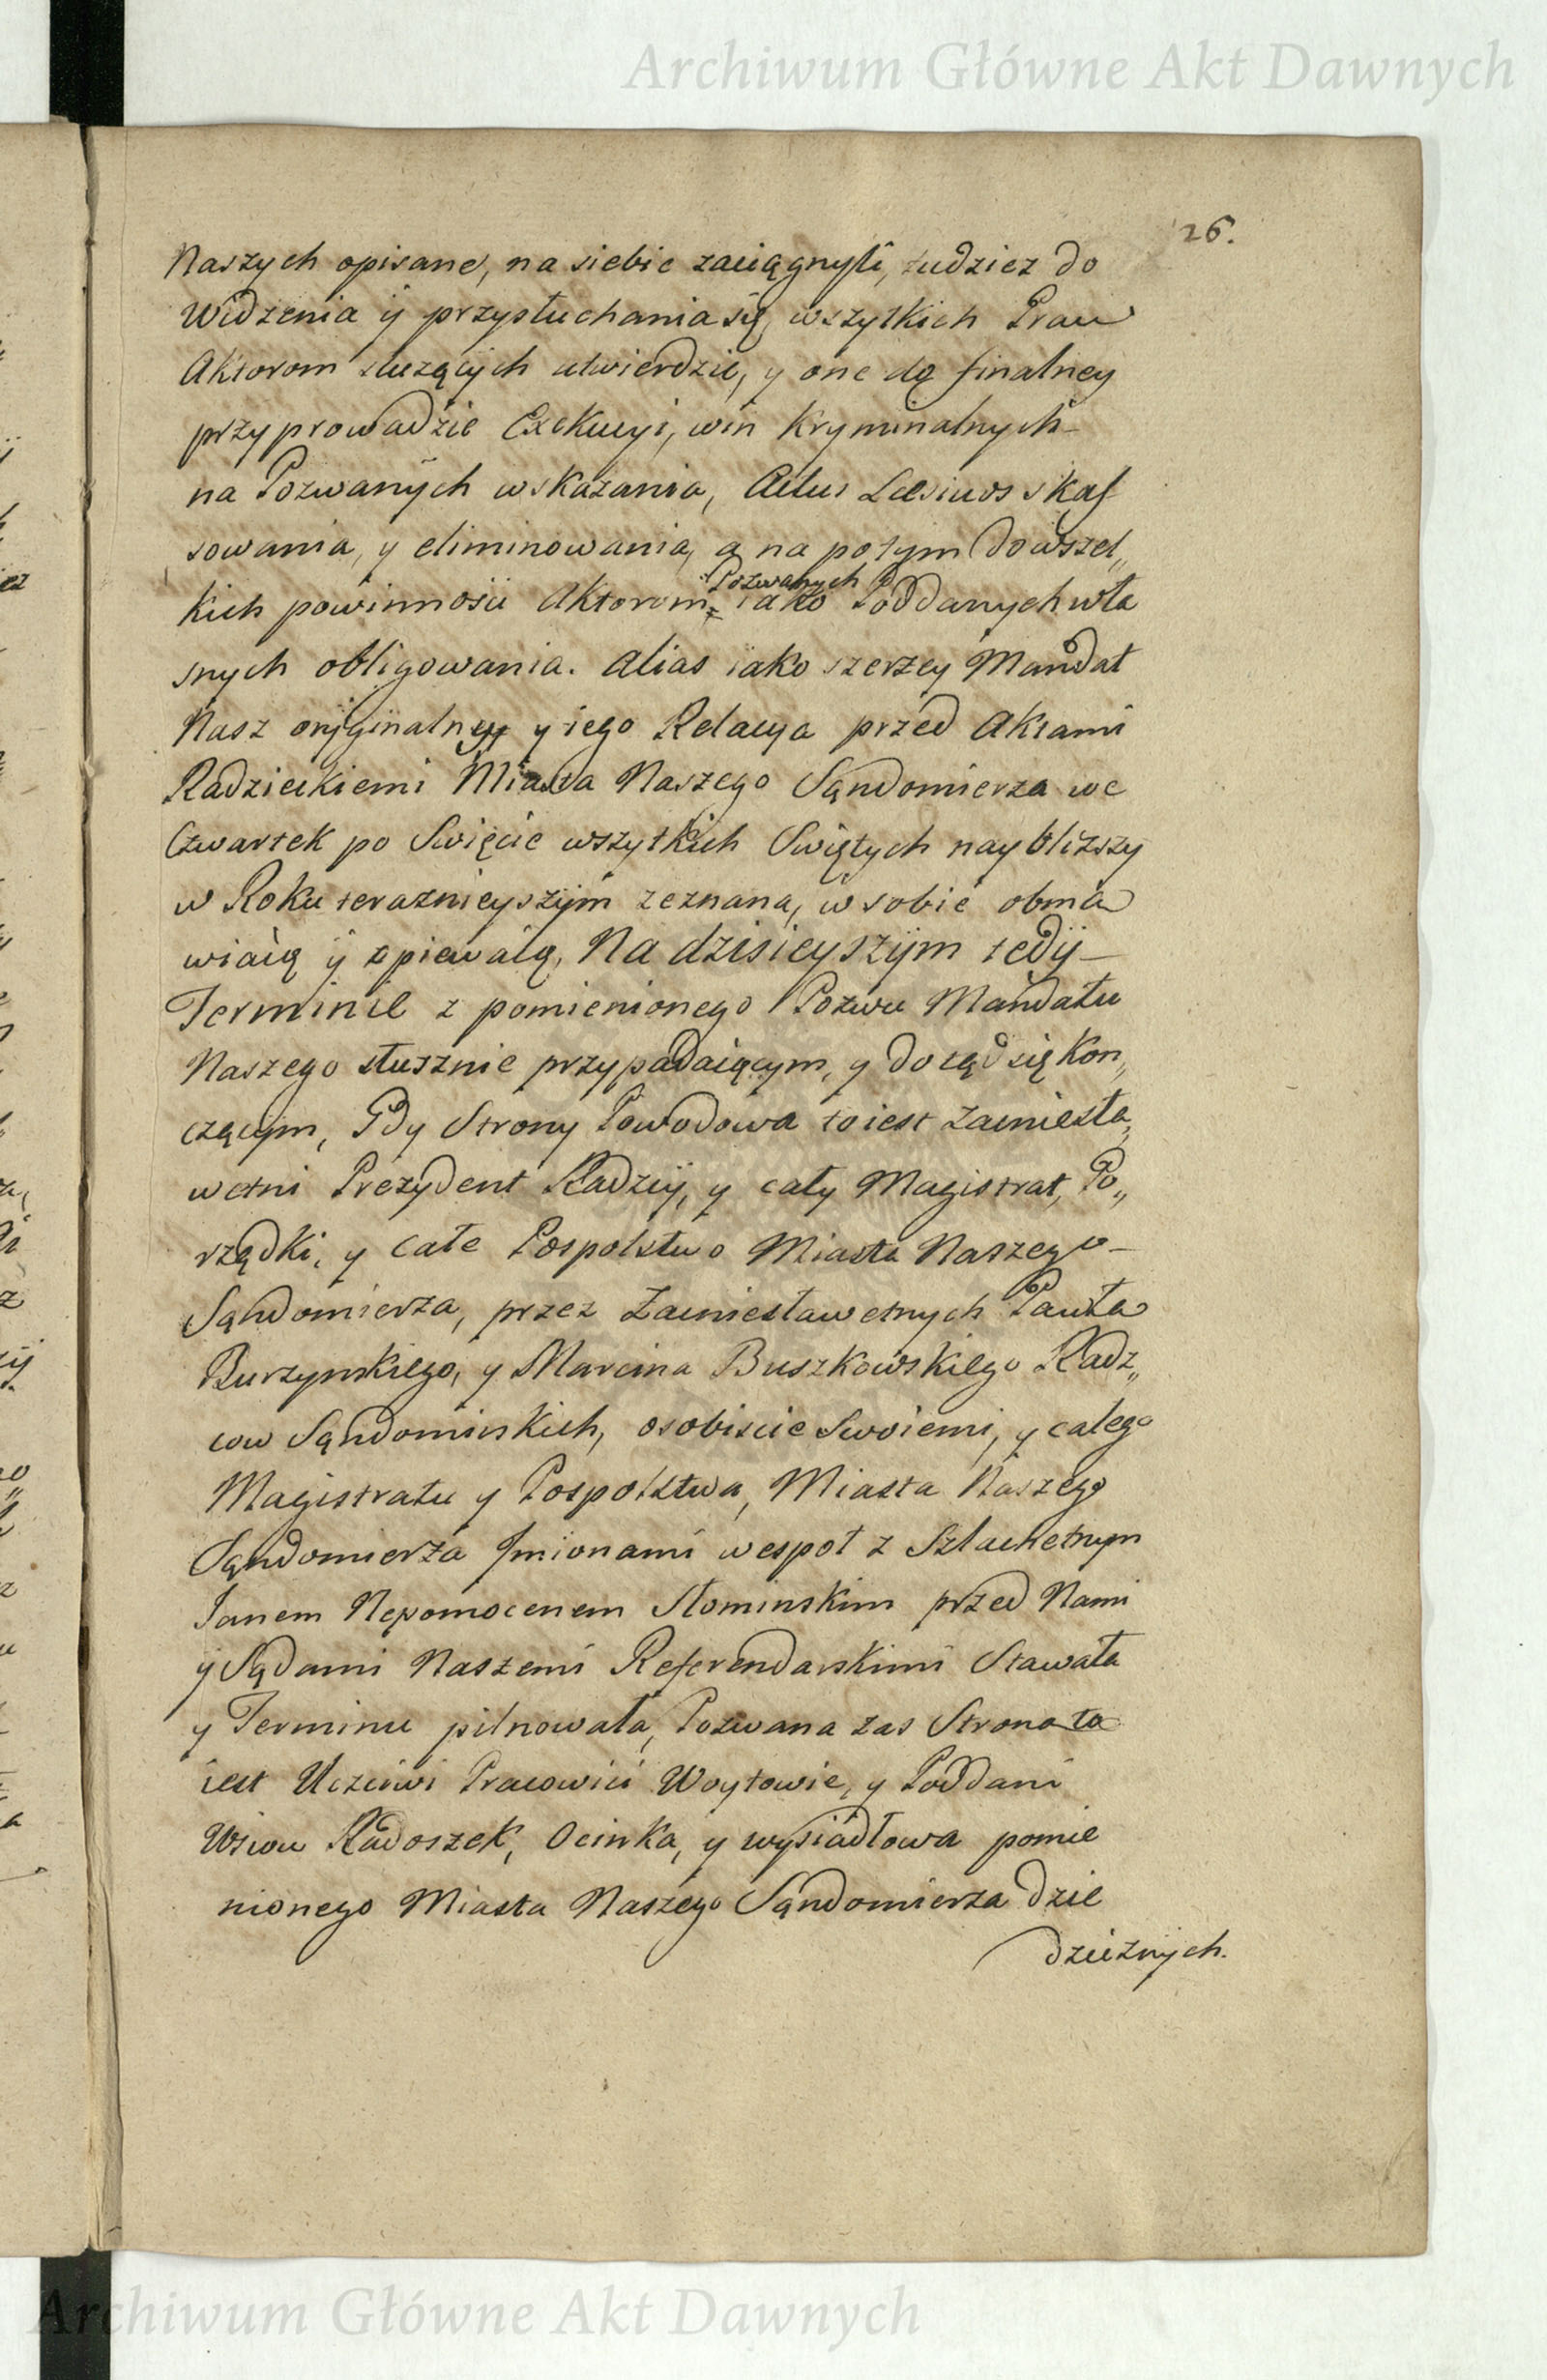 Archiwum Główne Akt Dawnych
26.
Naszych opisane, na siebie zaciągnyli, tudziez do
Widzenia ÿ przysłuchania się, wszytkich Praw
Aktorom słuzących utwierdzić, y one do finalney
przyprowadzic Exekucyi, win Kryminalnych-
na Pozwanych wskazania, Actus Læsivos skas
sowania, y eliminowania, a na potym do wszel„
Pozwanych
kich powinnosci Aktorom, iako Poddanych wła
snych obligowania. Alias iako szerzey Mandat
Nasz oryginalny y iego Relacya przed Aktami
Radzieckiemi Miasta Naszego Sandomierza we
Czwartek po Swięcie wszytkich Swiętych naybliższy
w Roku teraznieyszÿm zeznana, w sobie obma
wiaią ÿ opiewaią, Na dzisieyszÿm tedÿ-
Terminie z pomienionego Pozwu Mandatu
Naszego słusznie przypadaiącym, y dotąd się kon„
czącym, Gdy Strony Powodowa to iest Zacniesła„
wetni Prezydent Radzcÿ, y cały Magistrat, Po„
rządki, y całe Pospolstwo Miasta Naszego-
Sandomierza, przez Zacniesławetnych Pawła
Burzynskiego, y Marcina Buszkowskiego Radz„
cow Sandomirskich, osobiscie Swoiemi, y całego
Magistratu y Pospolstwa, Miasta Naszego
Sandomierza Jmionami wespoł z Szlachetnym
Janem Nepomocenem Słominskim przed Nami
y Sądami Naszemi Referendarskimi Stawała
y Terminu pilnowała, Pozwana zas Strona to
iest Uczciwi Pracowici Woytowie, y Poddani
Wsiow Radoszek, Ocinka, y wysiadłowa pomie
nionego Miasta Naszego Sandomierza dzie
dzicznych.
Archiwum Główne Akt Dawnych